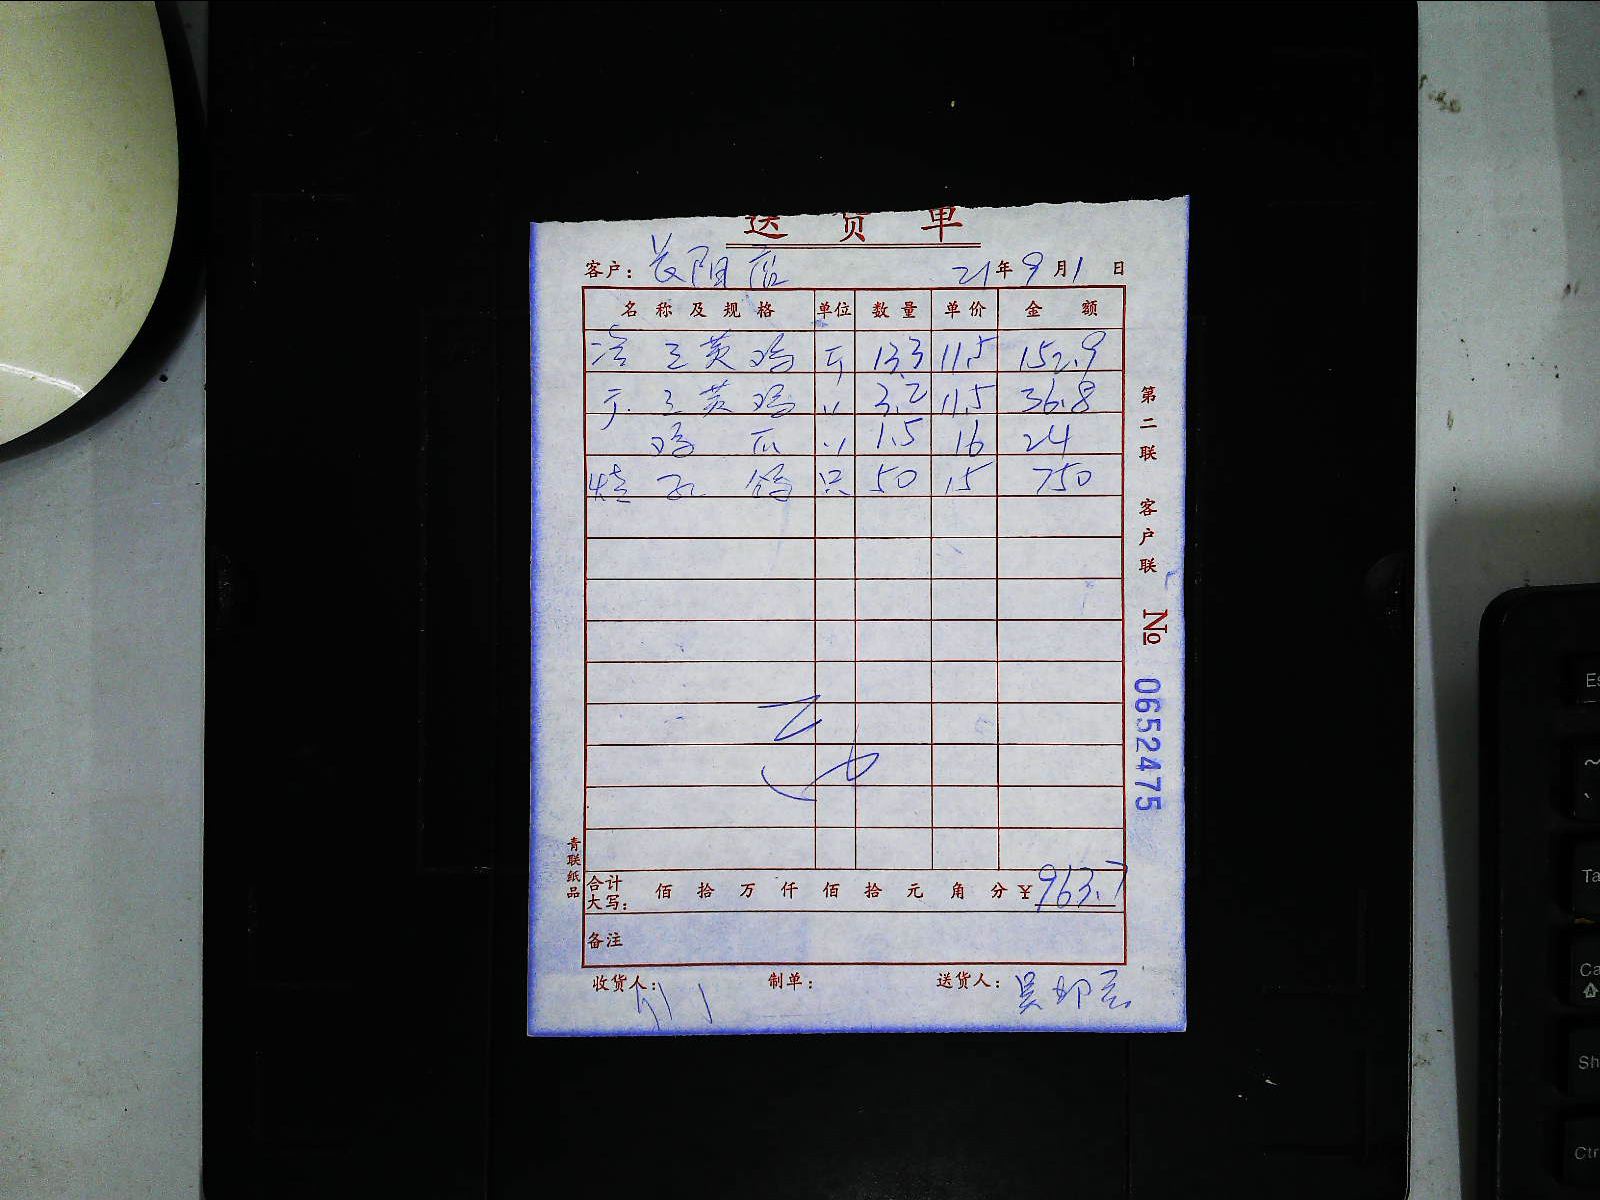 送货单
客户： 长阳店 21年9月1日
名称及规格 单位 数量 单价 金额
三黄鸡 斤 13.3 11.5 152.9
三黄鸡 〃 3.2 11.5 36.8
鸡爪 〃 1.5 16 24
烧乳鸽 只 50 15 750
合计大写： 佰 拾 万 仟 佰 拾 元 角 分 ¥963.7
备注
收货人： 制单： 送货人： 吴
第二联 客户联
№ 0652475
青联纸品
Es
~
Ta
Ca
Sh
Ctr